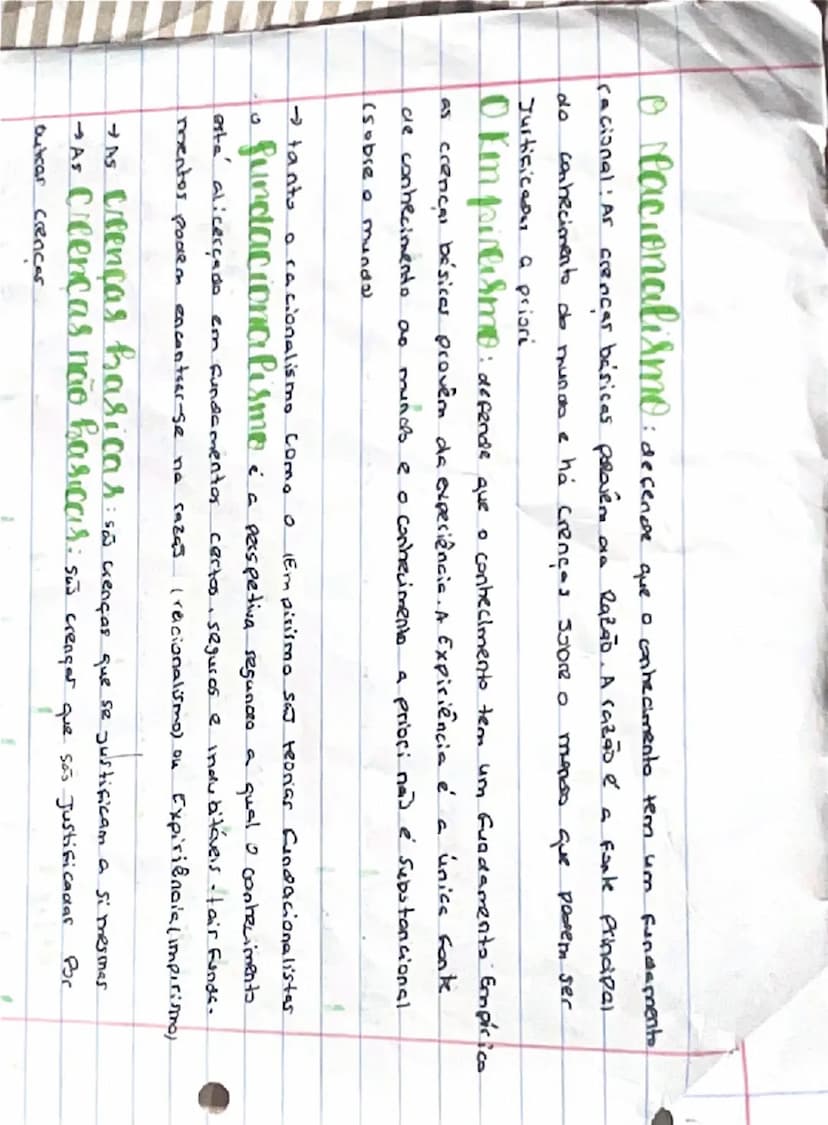 O Racionalismo: defende que o conhecimento tem um fundamento
racional: As crenças básicas provêm da Razão. A razão é a fonte principal
do conhecimento do mundo e há crenças sobre o mundo que podem ser
Justificadas a priori
O Empirismo: defende que o conhecimento tem um fundamento Empírico
as crenças básicas provêm da experiência. A Expiriência é a única fonte
de conhecimento do mundo e o conhecimento a priori não é Substancional
(sobre o mundo)
→ tanto o racionalismo como o Empirismo são teorias fundacionalistas
o fundacionalismo é a perspetiva segundo a qual o conhecimento
está alicerçado em fundamentos certos, seguros e indubitáveis. tais funda-
mentos podem encontrar-se na razão (racionalismo) ou Expiriência (impirismo)
→ As crenças basicas: são crenças que se justificam a si mesmas
→ As crencas não basicas: são crenças que são Justificadas por
outras crenças